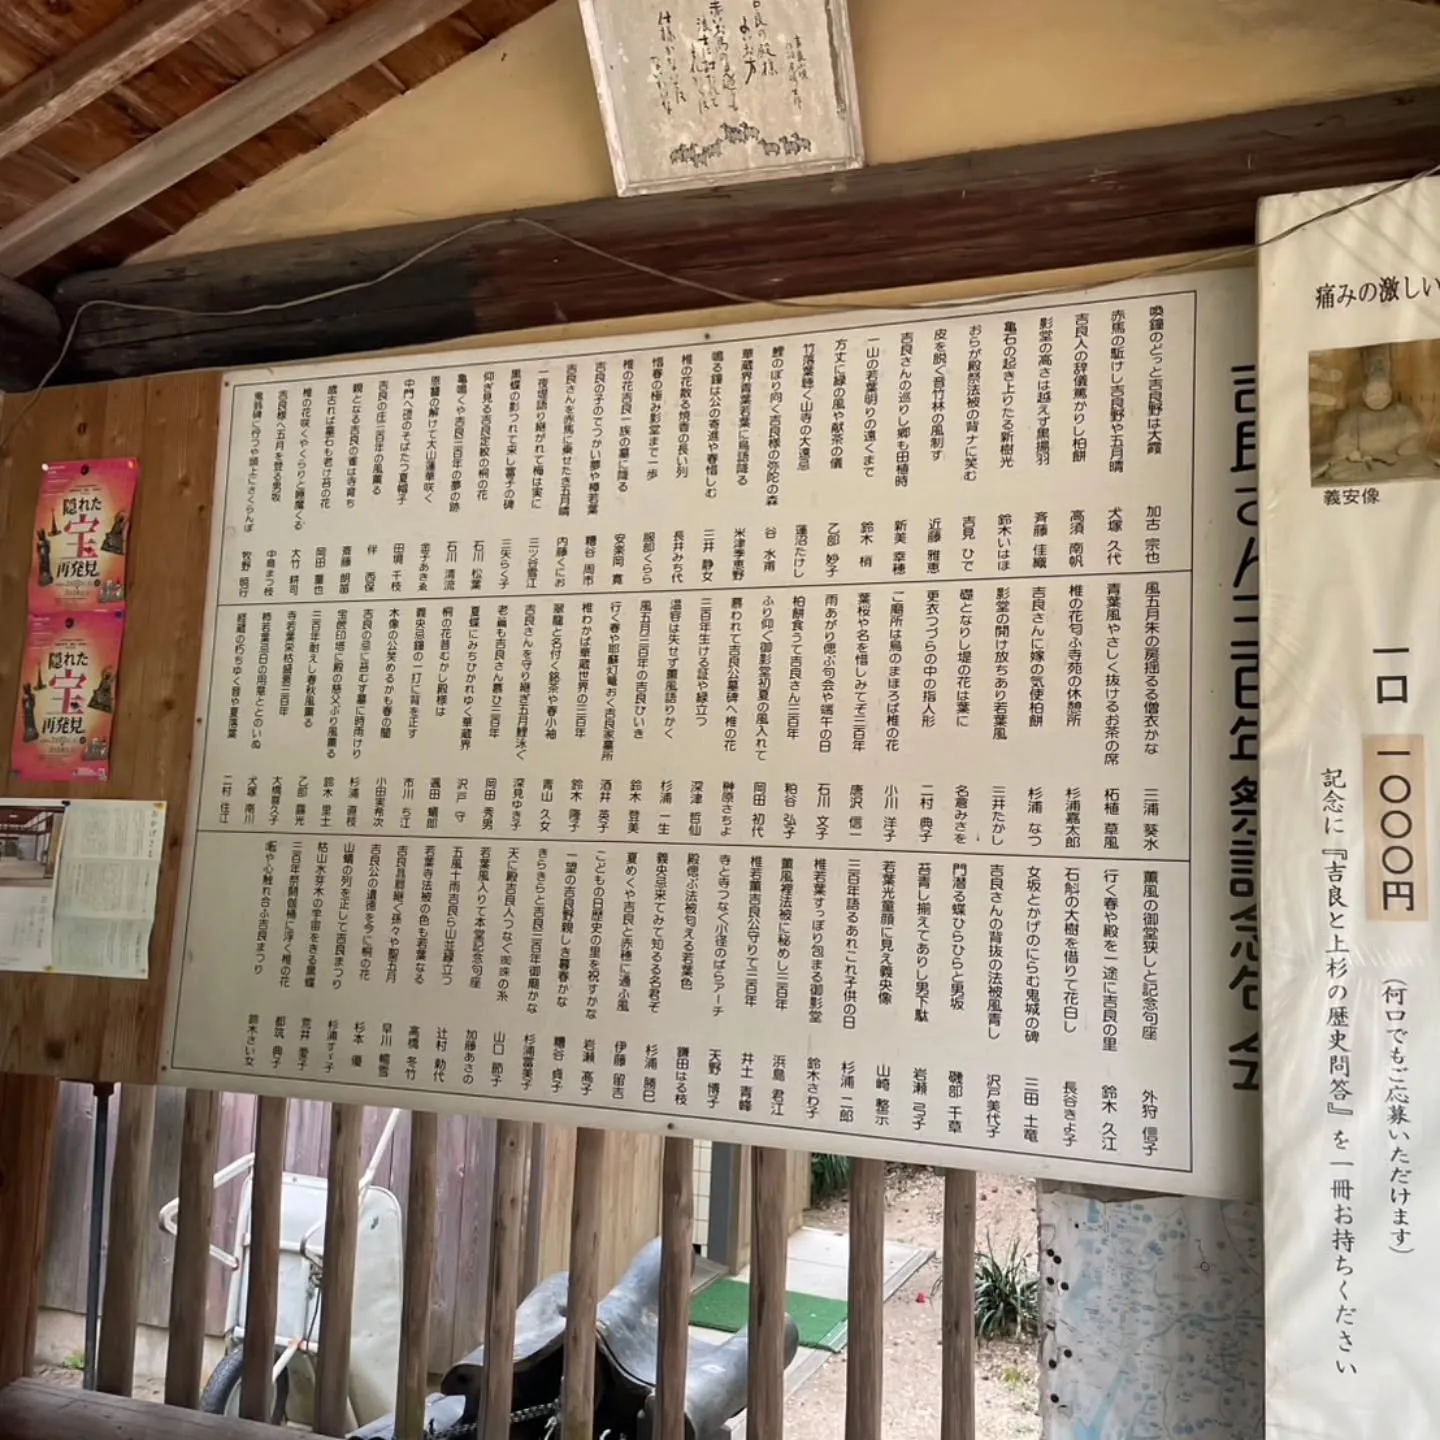 痛みの激しい
義安像
一口 一〇〇〇円
(何口でもご応募いただけます)
記念に『吉良と上杉の歴史問答』を一冊お持ちください
喚鐘のどっと吉良野は大霞 加古 宗也
赤馬の駈けし吉良野や五月晴 犬塚 久代
吉良人の辞儀篤かりし柏餅 高須 南帆
影堂の高さは越えず黒揚羽 斉藤 佳織
亀石の起き上りたる新樹光 鈴木いはほ
おらが殿祭法被の背ナに笑む 吉見 ひで
皮を脱ぐ音竹林の風制す 近藤 雅恵
吉良さんの巡りし郷も田植時 新美 幸穂
一山の若葉明りの遠くまで 鈴木 梢
方丈に緑の風や献茶の儀 乙部 妙子
竹落葉聴く山寺の大遠忌 蓮沼たけし
鯉のぼり向く吉良様の弥陀の森 谷 水甫
華蔵界青葉若葉に鳥語降る 米津季恵野
鳴る鐘は公の寄進や春惜しむ 三井 静女
椎の花散る焼香の長い列 長井みち代
惜春の極み影堂まで一歩 服部くらら
椎の花吉良一族の墓に降る 安楽岡 寛
吉良の子のでっかい夢や樟若葉 糟谷 周市
吉良さんを赤馬に乗せたき五月晴 内藤くにお
一夜堤語り継がれて梅は実に 三ツ谷雪江
黒蝶の影つれて来し富子の碑 三矢らく子
仰ぎ見る吉良定紋の桐の花 石川 松葉
亀鳴くや吉良三百年の夢の跡 石川 清流
恩讐の解けて大山蓮華咲く 金子あきゑ
中門へ道のそばたつ夏帽子 田境 千枝
吉良の庄三百年の風薫る 伴 西保
親となる吉良の雀は寺育ち 斎藤 朗笛
歳古れば墓石も老け苔の花 岡田 董也
椎の花咲くやくらりと睡魔くる 大竹 耕司
吉良様へ五月を登る男坂 中島まつ枝
鬼哭碑に佇つや頭上にさくらんぼ 牧野 暁行
風五月朱の房揺るる僧衣かな 三浦 葵水
青葉風やさしく抜けるお茶の席 柘植 草風
椎の花匂ふ寺苑の休憩所 杉浦嘉太郎
吉良さんに嫁の気使柏餅 杉浦 なつ
影堂の開け放ちあり若葉風 三井たかし
礎となりし堤の花は葉に 名倉みさを
更衣つづらの中の指人形 二村 典子
ご廟所は鳥のまほろば椎の花 小川 洋子
葉桜や名を惜しみてぞ三百年 唐沢 信一
雨あがり偲ぶ句会や端午の日 石川 文子
柏餅食うて吉良さん三百年 粕谷 弘子
ふり仰ぐ御影堂初夏の風入れて 岡田 初代
慕われて吉良公墓碑へ椎の花 榊原さちよ
三百年生ける証や緑立つ 深津 哲仙
温容は失せず薫風語りかく 杉浦 一生
風五月三百年の吉良びいき 鈴木 登美
行く春や耶蘇灯篭おく吉良家墓所 酒井 英子
椎わかば華蔵世界の三百年 鈴木 隆子
翠龍と名付く銘茶や春小袖 青山 久女
吉良さんを守り継ぎ五月鯉泳ぐ 深見ゆき子
老鶯も吉良さん慕ひ三百年 岡田 秀男
夏蝶にみちびかれゆく華蔵界 沢戸 守
桐の花昔むかし殿様は 颯田 蟻郎
義央忌鐘の一打に背を正す 市川 ち江
木像の公笑めるかも春の闇 小田実希次
吉良の忌に苔むす墓に時雨けり 杉浦 直枝
宝篋印塔に殿の慈父ぶり風薫る 鈴木 里士
三百年耐えし春秋風薫る 乙部 露光
寺若葉栄枯盛衰三百年 大橋喜久子
柿若葉忌日の用意ととのいぬ 犬塚 南川
経蔵の朽ちゆく音や夏落葉 二村 佳江
薫風の御堂狭しと記念句座 外狩 信子
行く春や殿を一途に吉良の里 鈴木 久江
石斛の大樹を借りて花白し 長谷きよ子
女坂とかげのにらむ鬼城の碑 三田 土竜
吉良さんの背抜の法被風青し 沢戸美代子
門潜る蝶ひらひらと男坂 磯部 千草
苔青し揃えてありし男下駄 岩瀬 弓子
若葉光童顔に見え義央像 山崎 整示
三百年語るあれこれ子供の日 杉浦 二郎
椎若葉すっぽり包まる御影堂 鈴木さわ子
薫風裡法被に秘めし三百年 浜島 君江
椎若葉吉良公守りて三百年 井土 青峰
寺と寺つなぐ小径のばらアーチ 天野 博子
殿偲ぶ法被匂える若葉色 鎌田はる枝
義央忌来てみて知るる名君ぞ 杉浦 勝巳
夏めくや吉良と赤穂に通ふ風 伊藤 留吉
こどもの日歴史の里を祝すかな 岩瀬 高子
一望の吉良野親しき暮春かな 糟谷 貞子
きらきらと吉良三百年御廟かな 杉浦富美子
天に殿吉良人つなぐ蜘蛛の糸 山口 節子
若葉風入りて本堂記念句座 加藤あさの
五風十雨吉良ら山並緑立つ 辻村 勅代
若葉寺法被の色も若葉なる 高橋 冬竹
吉良昌郡継ぐ孫々や聖五月 早川 暢雪
吉良公の遺徳を今に桐の花 杉本 優
山蟻の列を正して吉良まつり 杉浦すゞ子
枯山水芽木の宇宙をきる黒蝶 荒井 愛子
三百年祭閼伽桶に浮く椎の花 都筑 典子
心触れ合ふ吉良まつり 鈴木さい女
隠れた
宝
再発見
隠れた
宝
再発見